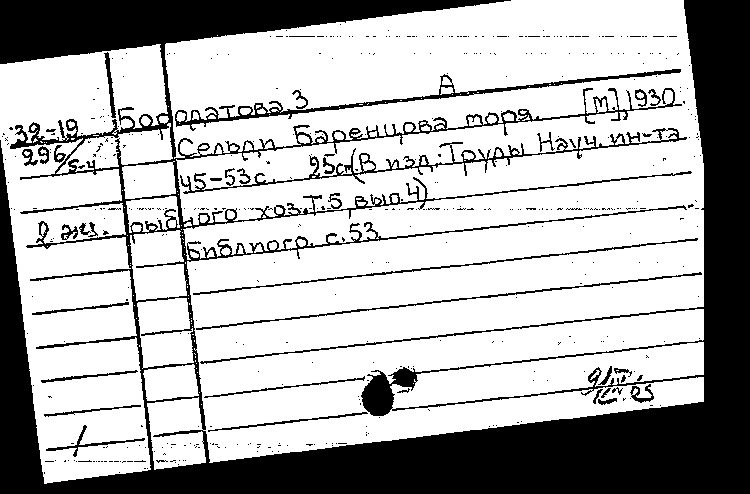 А
39-19 Бородатова, З
296/5-4 Сельди Баренцова моря. [М.], 1930
45-53 с. 25 см (В изд.: Труды Науч. ин-та
2 экз. рыбного хоз. Т. 5, вып. 4)
Библиогр. с. 53.